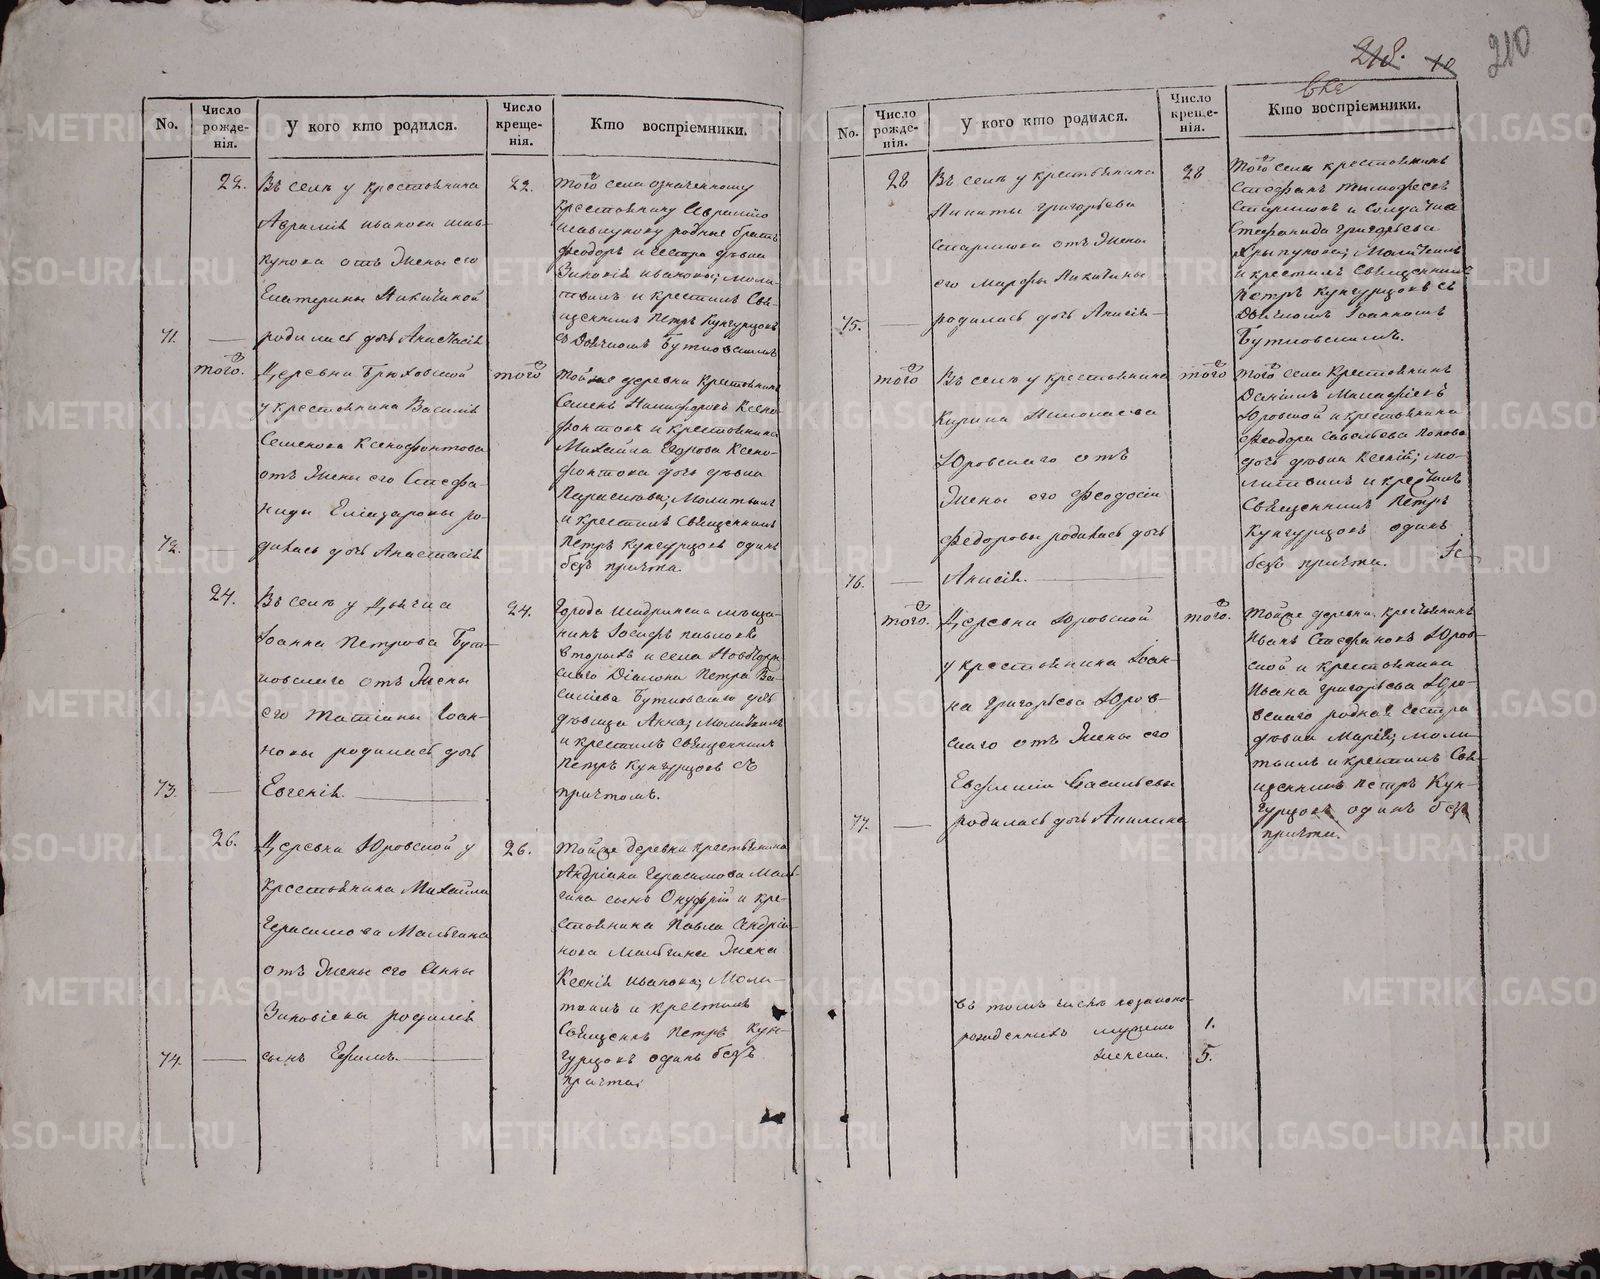 218. 10
210
вке
No.
Число рожде- нія.
У кого кто родился.
Число креще- нія.
Кто воспріемники.
22.
Въ селѣ у крестьянина
Аврамія Иванова Шав-
кунова отъ жены его
Екатерины Никитиной
71. — родилась дочь Анастасія
22.
того села означенному
крестьянину Аврамію
Шавкунову родные братъ
Феодоръ и сестра дѣвка
Зиновія Иванова; моли-
твилъ и крестилъ Свя-
щенникъ Петръ Кунгурцовъ
съ Дьячкомъ Бутковскимъ
того.
Деревни Брюховской
у крестьянина Василія
Семенова Ксенофонтова
отъ жены его Стефа-
ниды Еліазаровы ро-
72. — дилась дочь Анастасія
того
Тойже деревни крестьянинъ
Семенъ Никифоровъ Ксено-
фонтовъ и крестьянина
Михайла Егорова Ксено-
фонтова дочь дѣвка
Параскева; Молитвилъ
и крестилъ Священникъ
Петръ Кунгурцовъ одинъ
безъ причта.
24.
Въ селѣ у Дьячка
Іоанна Петрова Бут-
ковскаго отъ жены
его Татіаны Іоан-
новы родилась дочь
73. — Евгенія.
24.
Города Шадринска мѣща-
нинъ Іосифъ Павловъ
Вторыхъ и села
Діакона Петра Ва-
силіева Бутковскаго дочь
дѣвица Анна; Молитвилъ
и крестилъ Священникъ
Петръ Кунгурцовъ съ
причтомъ.
26.
Деревни Юровской у
крестьянина Михайла
Герасимова Мальгина
отъ жены его Анны
Зиновіевы родился
74. — сынъ Ефимъ.
26.
Тойже деревни крестьянина
Андріана Герасимова Маль-
гина сынъ Онуфрій и кре-
стьянина Павла Андріа-
нова Мальгина жена
Ксенія Иванова; Моли-
твилъ и крестилъ
Священникъ Петръ Кун-
гурцовъ одинъ безъ
причта.
No.
Число рожде- нія.
У кого кто родился.
Число креще- нія.
Кто воспріемники.
28
Въ селѣ у крестьянина
Никиты Григорьева
Старикова отъ жены
его Марфы Никитины
75. — родилась дочь Анисія
28
Того села крестьянинъ
Стефанъ Тимофеевъ
Стариковъ и Солдатка
Стефанида Григорьева
Молитвилъ
и крестилъ Священникъ
Петръ Кунгурцовъ съ
Дьячкомъ Іоанномъ
Бутковскимъ.
того
Въ селѣ у крестьянина
Кирика Николаева
Юровскаго отъ
жены его Феодосіи
Федоровы родилась дочь
76. — Анисія.
того
того села Крестьянинъ
Даніилъ
Юровской и крестьянина
Феодора Савватева Попова
дочь дѣвка Ксенія; мо-
литвилъ и крестилъ
Священникъ Петръ
Кунгурцовъ одинъ
безъ причта.
того.
Деревни Юровской
у крестьянина Іоан-
на Григорьева Юров-
скаго отъ жены его
Евфиміи Васильевы
77. — родилась дочь Акилина
того.
Тойже деревни крестьянинъ
Иванъ Стефановъ Юров-
ской и крестьянина
Ивана Григорьева Юро-
вскаго родная сестра
дѣвка Марія; моли-
твилъ и крестилъ Свя-
щенникъ Петръ Кун-
гурцовъ одинъ безъ
причта.
Въ томъ числѣ незаконно-
рожденныхъ мужеска 1.
женска. 5.